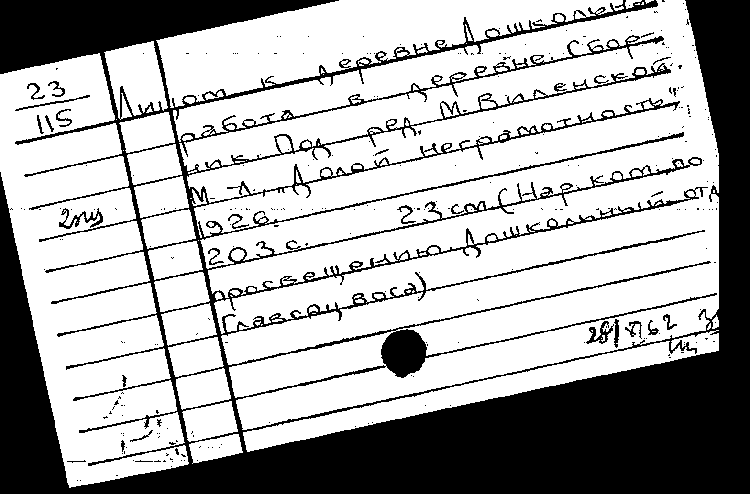 23
115
Лицом к деревне. Дошкольна
работа в деревне. Сбор-
ник. Под ред. М. Виленской.
М. -Л., „Долой неграмотность",
2 экз
1926.
203 с. 23 см. (Нар. ком. по
просвещению. Дошкольный отд
Главсоцвоса).